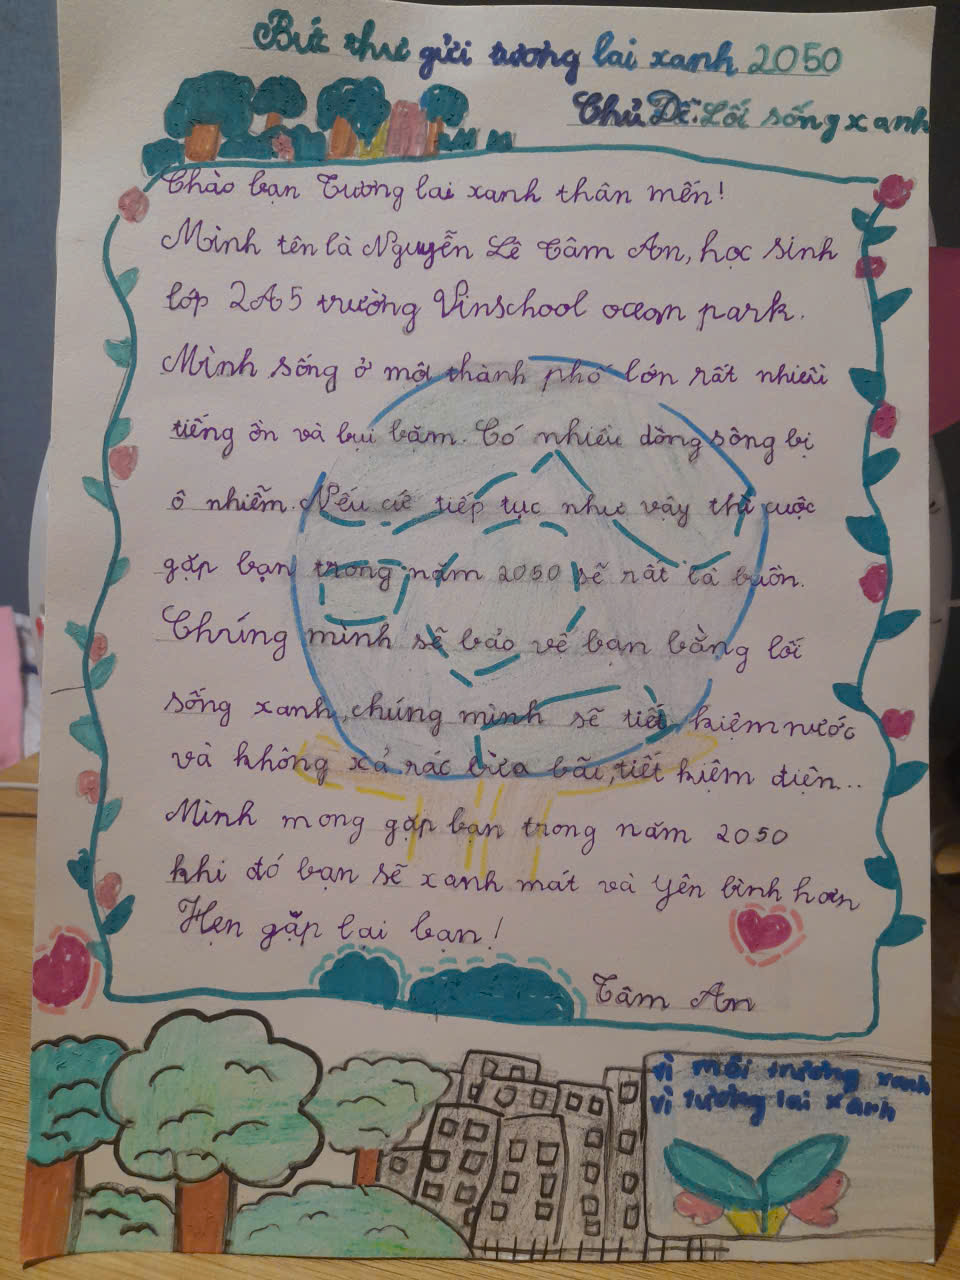 Bức thư gửi tương lai xanh 2050
Chủ Đề: Lối sống xanh
Chào bạn Tương lai xanh thân mến!
Mình tên là Nguyễn Lê Tâm An, học sinh
lớp 2A5 trường Vinschool ocean park.
Mình sống ở một thành phố lớn rất nhiều
tiếng ồn và bụi băm. Có nhiều dòng sông bị
ô nhiễm. Nếu cứ tiếp tục như vậy thì cuộc
gặp bạn trong năm 2050 sẽ rất là buồn.
Chúng mình sẽ bảo vệ bạn bằng lối
sống xanh, chúng mình sẽ tiết kiệm nước
và không xả rác bừa bãi, tiết kiệm điện...
Mình mong gặp bạn trong năm 2050
khi đó bạn sẽ xanh mát và yên bình hơn
Hẹn gặp lại bạn!
Tâm An
vì môi trường xanh
vì tương lai xanh